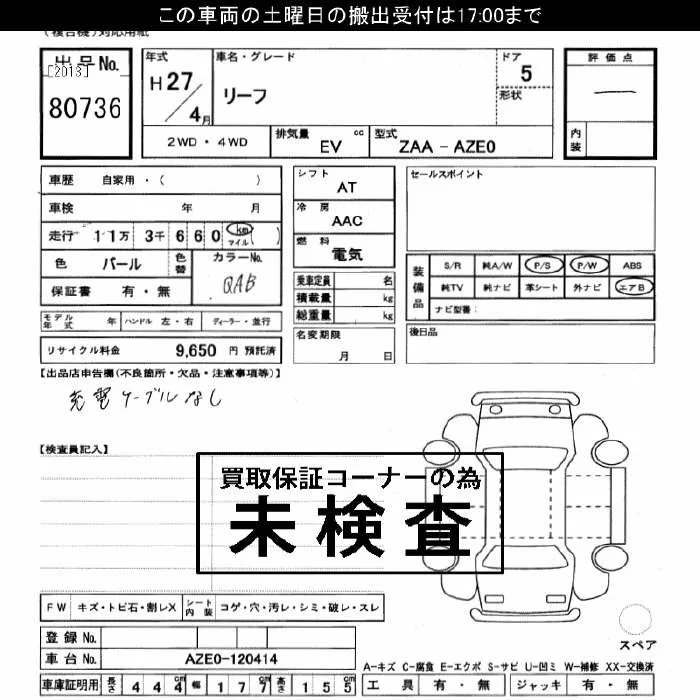 この車両の土曜日の搬出受付は17:00まで
(複合機)対応用紙
出品No.
[2013]
80736
年式
H27/4月
車名・グレード
リーフ
ドア
5
形状
評価点
内装
2WD・4WD
排気量 cc
EV
型式
ZAA-AZE0
車歴 自家用・( )
車検 年 月
走行 11万 3千660 km マイル ( )
色 パール 色替 カラーNo.
QAB
保証書 有・無
モデル年式 年 ハンドル 左・右 ディーラー・並行
リサイクル料金 9,650 円 預託済
シフト
AT
冷房
AAC
燃料
電気
乗車定員 名
積載量 kg
総重量 kg
名変期限
月 日
セールスポイント
装備品
S/R 純A/W P/S P/W ABS
純TV 純ナビ 革シート 外ナビ エアB
ナビ型番:
後日品
【出品店申告欄(不良箇所・欠品・注意事項等)】
充電ケーブルなし
【検査員記入】
買取保証コーナーの為
未検査
FW キズ・トビ石・割レX シート内装 コゲ・穴・汚レ・シミ・破レ・スレ
登録No.
車台No. AZE0-120414
車庫証明用 長さ 444cm 幅 177cm 高さ 155cm
スペア
A-キズ C-腐食 E-エクボ S-サビ U-凹ミ W-補修 XX-交換済
工具 有・無 ジャッキ 有・無